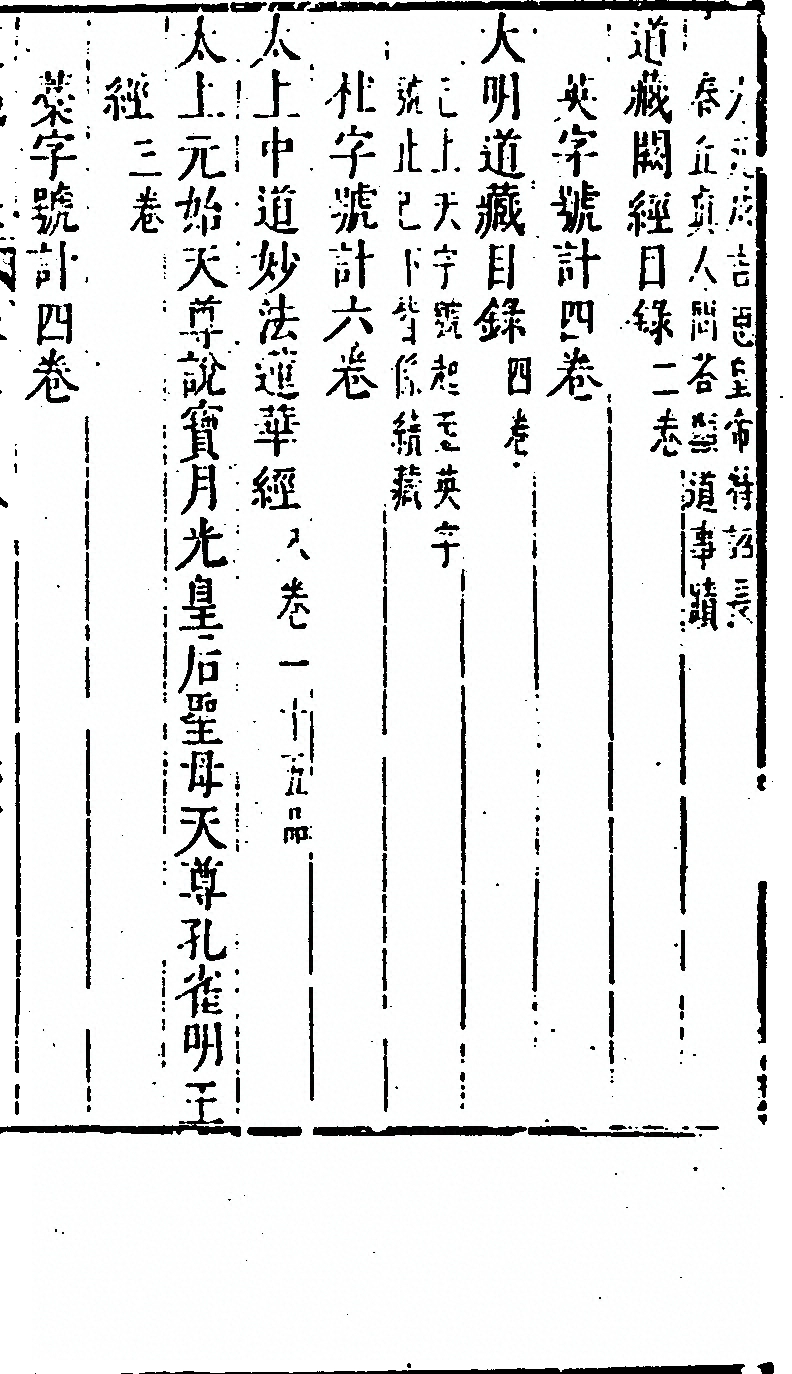 春丘真人問答顯道事蹟
道藏闕經目錄二卷
英字號計四卷
大明道藏目錄四卷
已上天字號起至英字
號止已下皆係續藏
杜字號計六卷
太上中道妙法蓮華經八卷一十五品
太上元始天尊說寶月光皇后聖母天尊孔雀明王
經三卷
藁字號計四卷